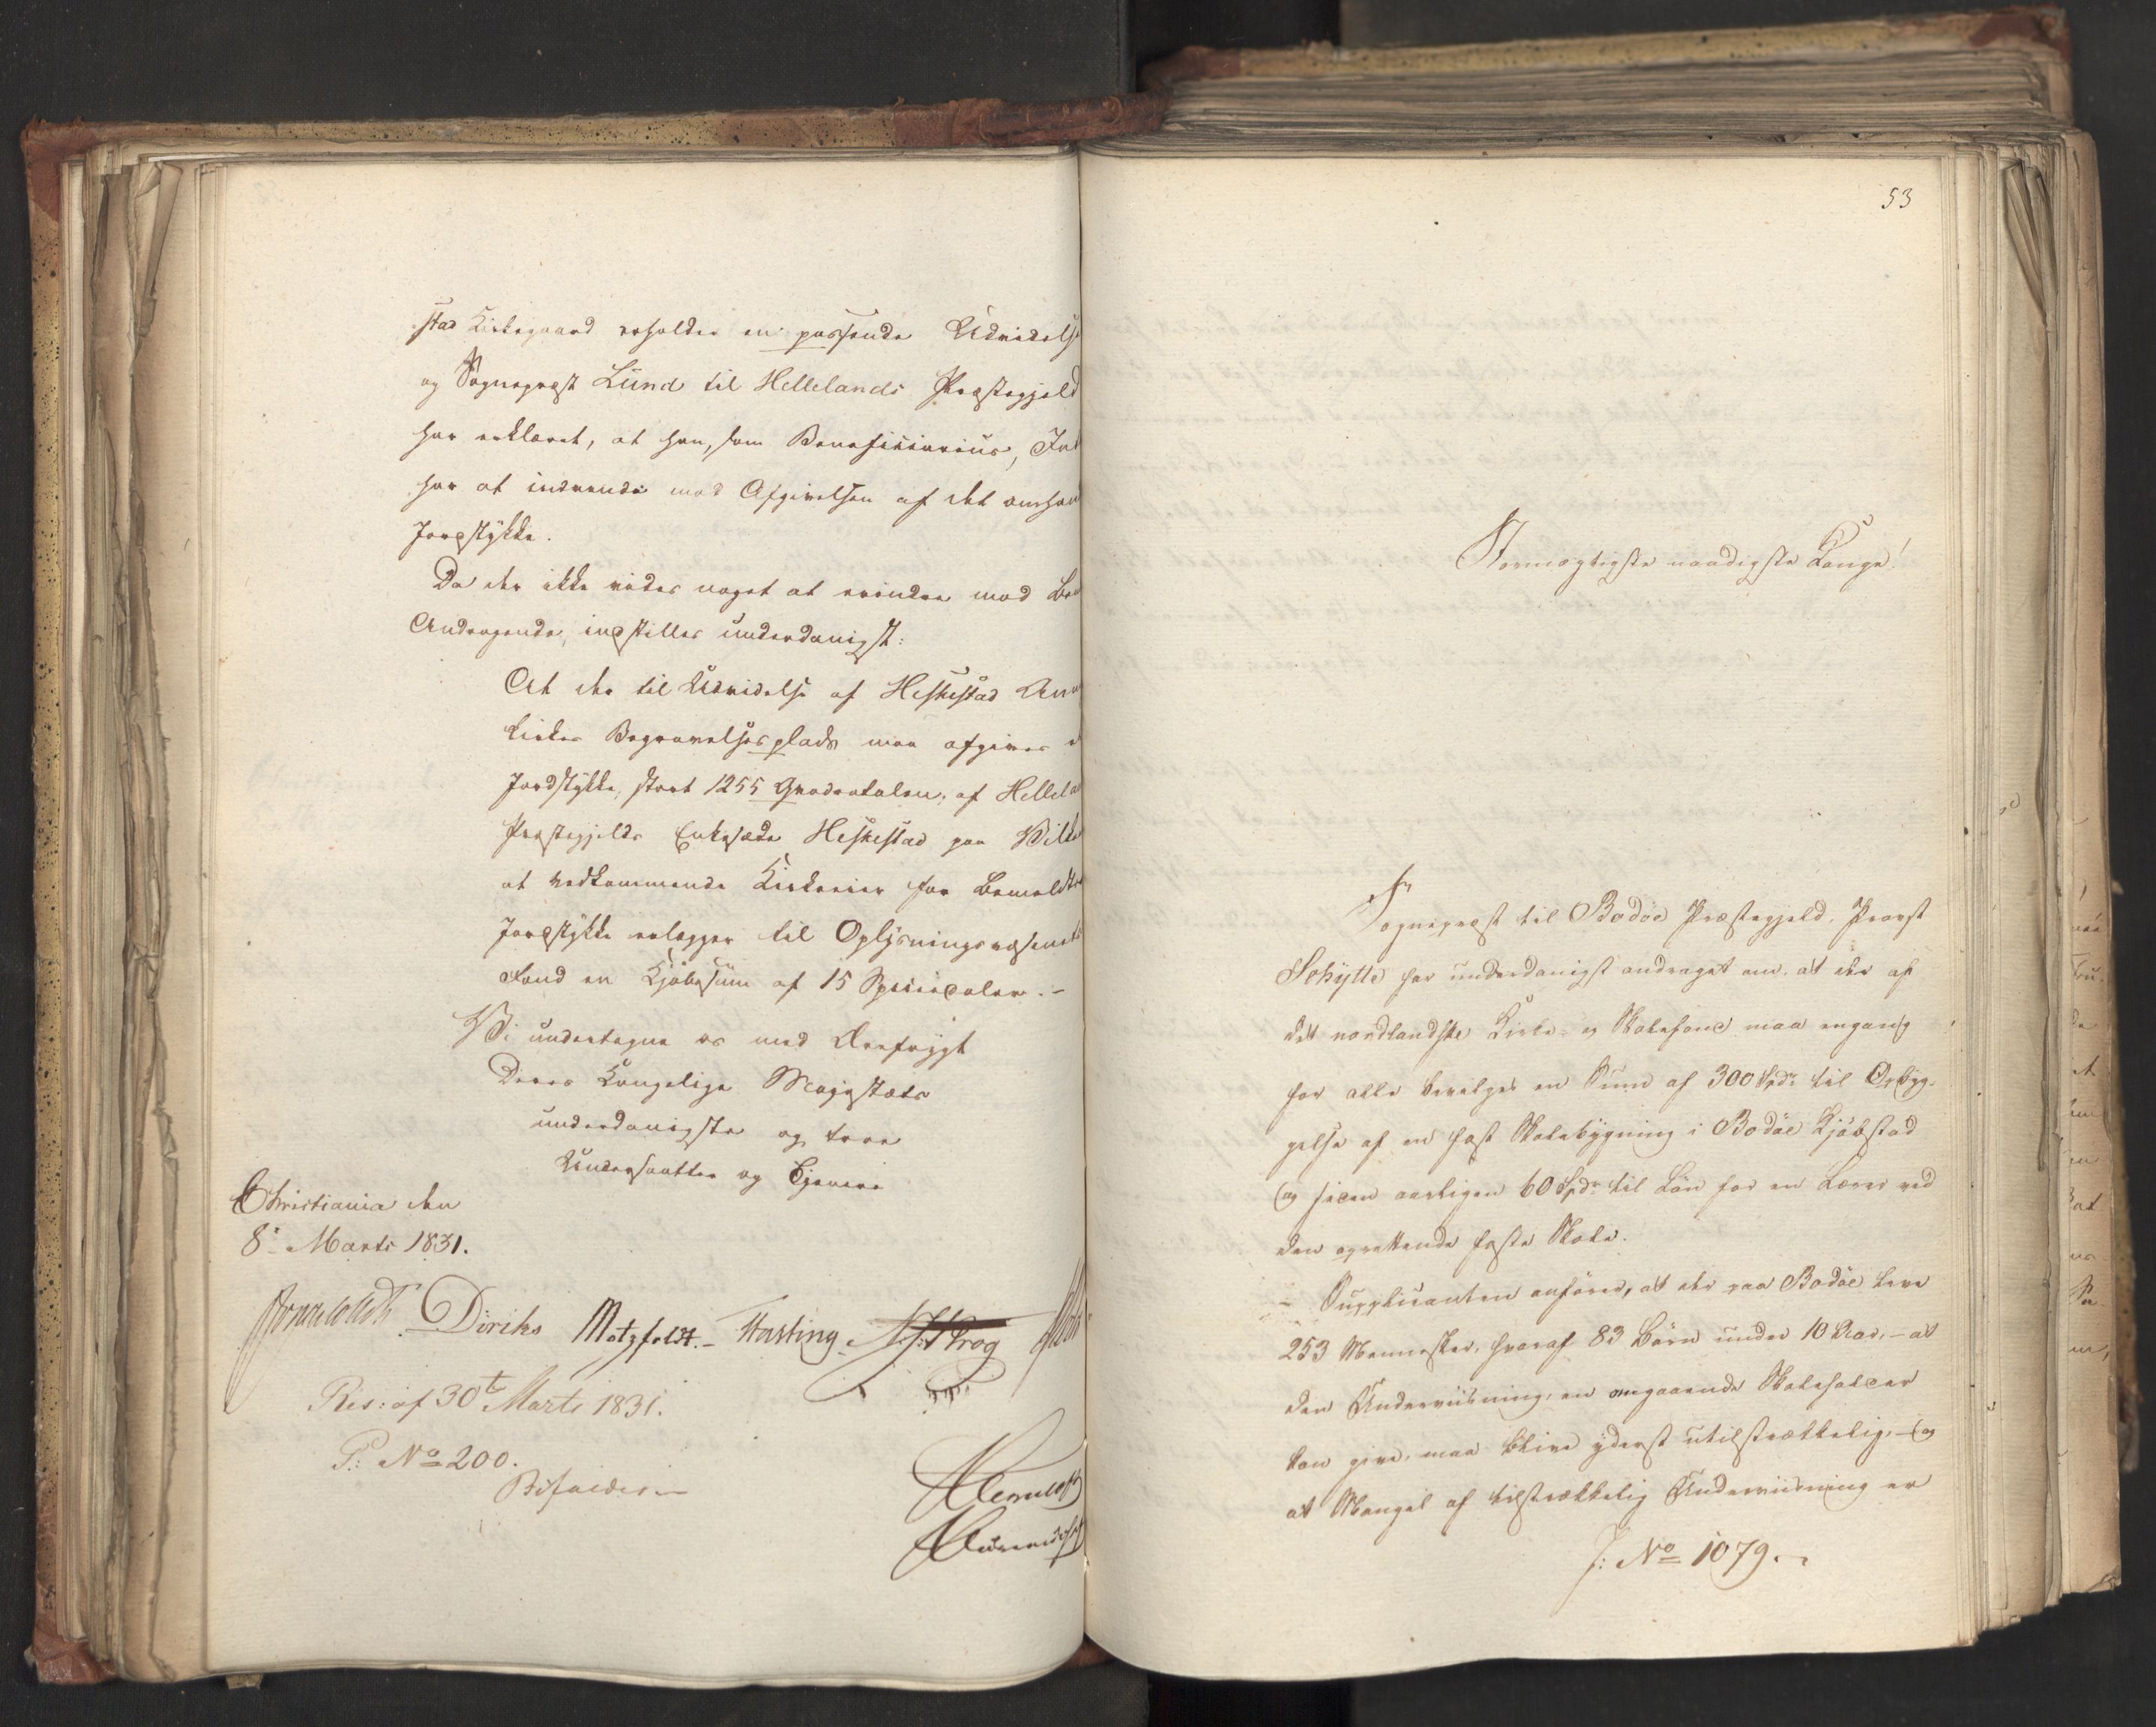 stad Kirkegaard erholder en passende Udvidelse
og Sognepræst Lund til Hellelands Præstegjeld
har erklæret, at han, som Beneficiarius, Intet
har at indvende mod Afgivelsen af det omhan
Jordstykke.
Da der ikke vides noget at erindre mod
Andragende, indstilles underdanigst:
At der til Udvidelse af Heskestad Annex
kirkes Begravelsesplads maa afgives
Jordstykke, stort 1255 Qvadratalen, af Hellela
Præstegjelds Enkesæde Heskestad paa Vilkaar
at vedkommende Kirkeeier for bemeldte
Jordstykke erlægger til Oplysningsvæsenets
Fond en Kjøbesum af 15 Speciedaler.-
Vi undertegne os med Ærefrygt
Deres Kongelige Majestæts
underdanigste og troe
Undersaatter og Tjenere
Christiania den
8de Marts 1831.
Diriks Motzfeldt.- Krog
Res: af 30te Marts 1831.
P: No 200.
Bifaldes.-
53
Stormægtigste naadigste Konge!
Sognepræst til Bodøe Præstegjeld, Provst
Schytte har underdanigst andraget om, at der af
det nordlandske Kirke- og Skolefond maa engang
for alle bevilges en Sum af 300 Spdr til Opbyg-
gelse af en fast Skolebygning i Bodøe Kjøbstad
og siden aarligen 60 Spdr til Løn for en Lærer ved
den oprettende faste Skole.
- Supplicanten anfører, at der paa Bodøe leve
253 Mennesker, hvoraf 83 Børn under 10 Aar, - at
den Underviisning, en omgaaende Skoleholder
kan give, maa blive yderst utilstrækkelig, - og
at Mangel af tilstrækkelig Underviisning er
J: No 1079.-